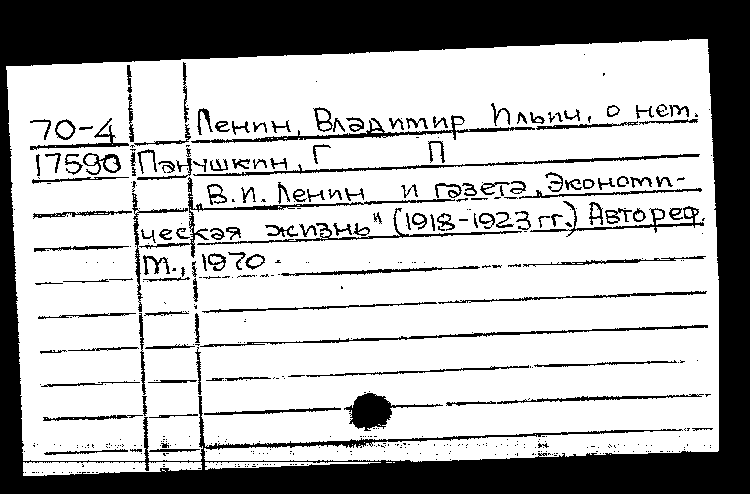 70-4 Ленин, Владимир Ильич, о нем.
17590 Панушкин, Г П
"В.И. Ленин и газета "Экономи-
ческая жизнь" (1918-1923 гг.) Автореф.
М., 1970.